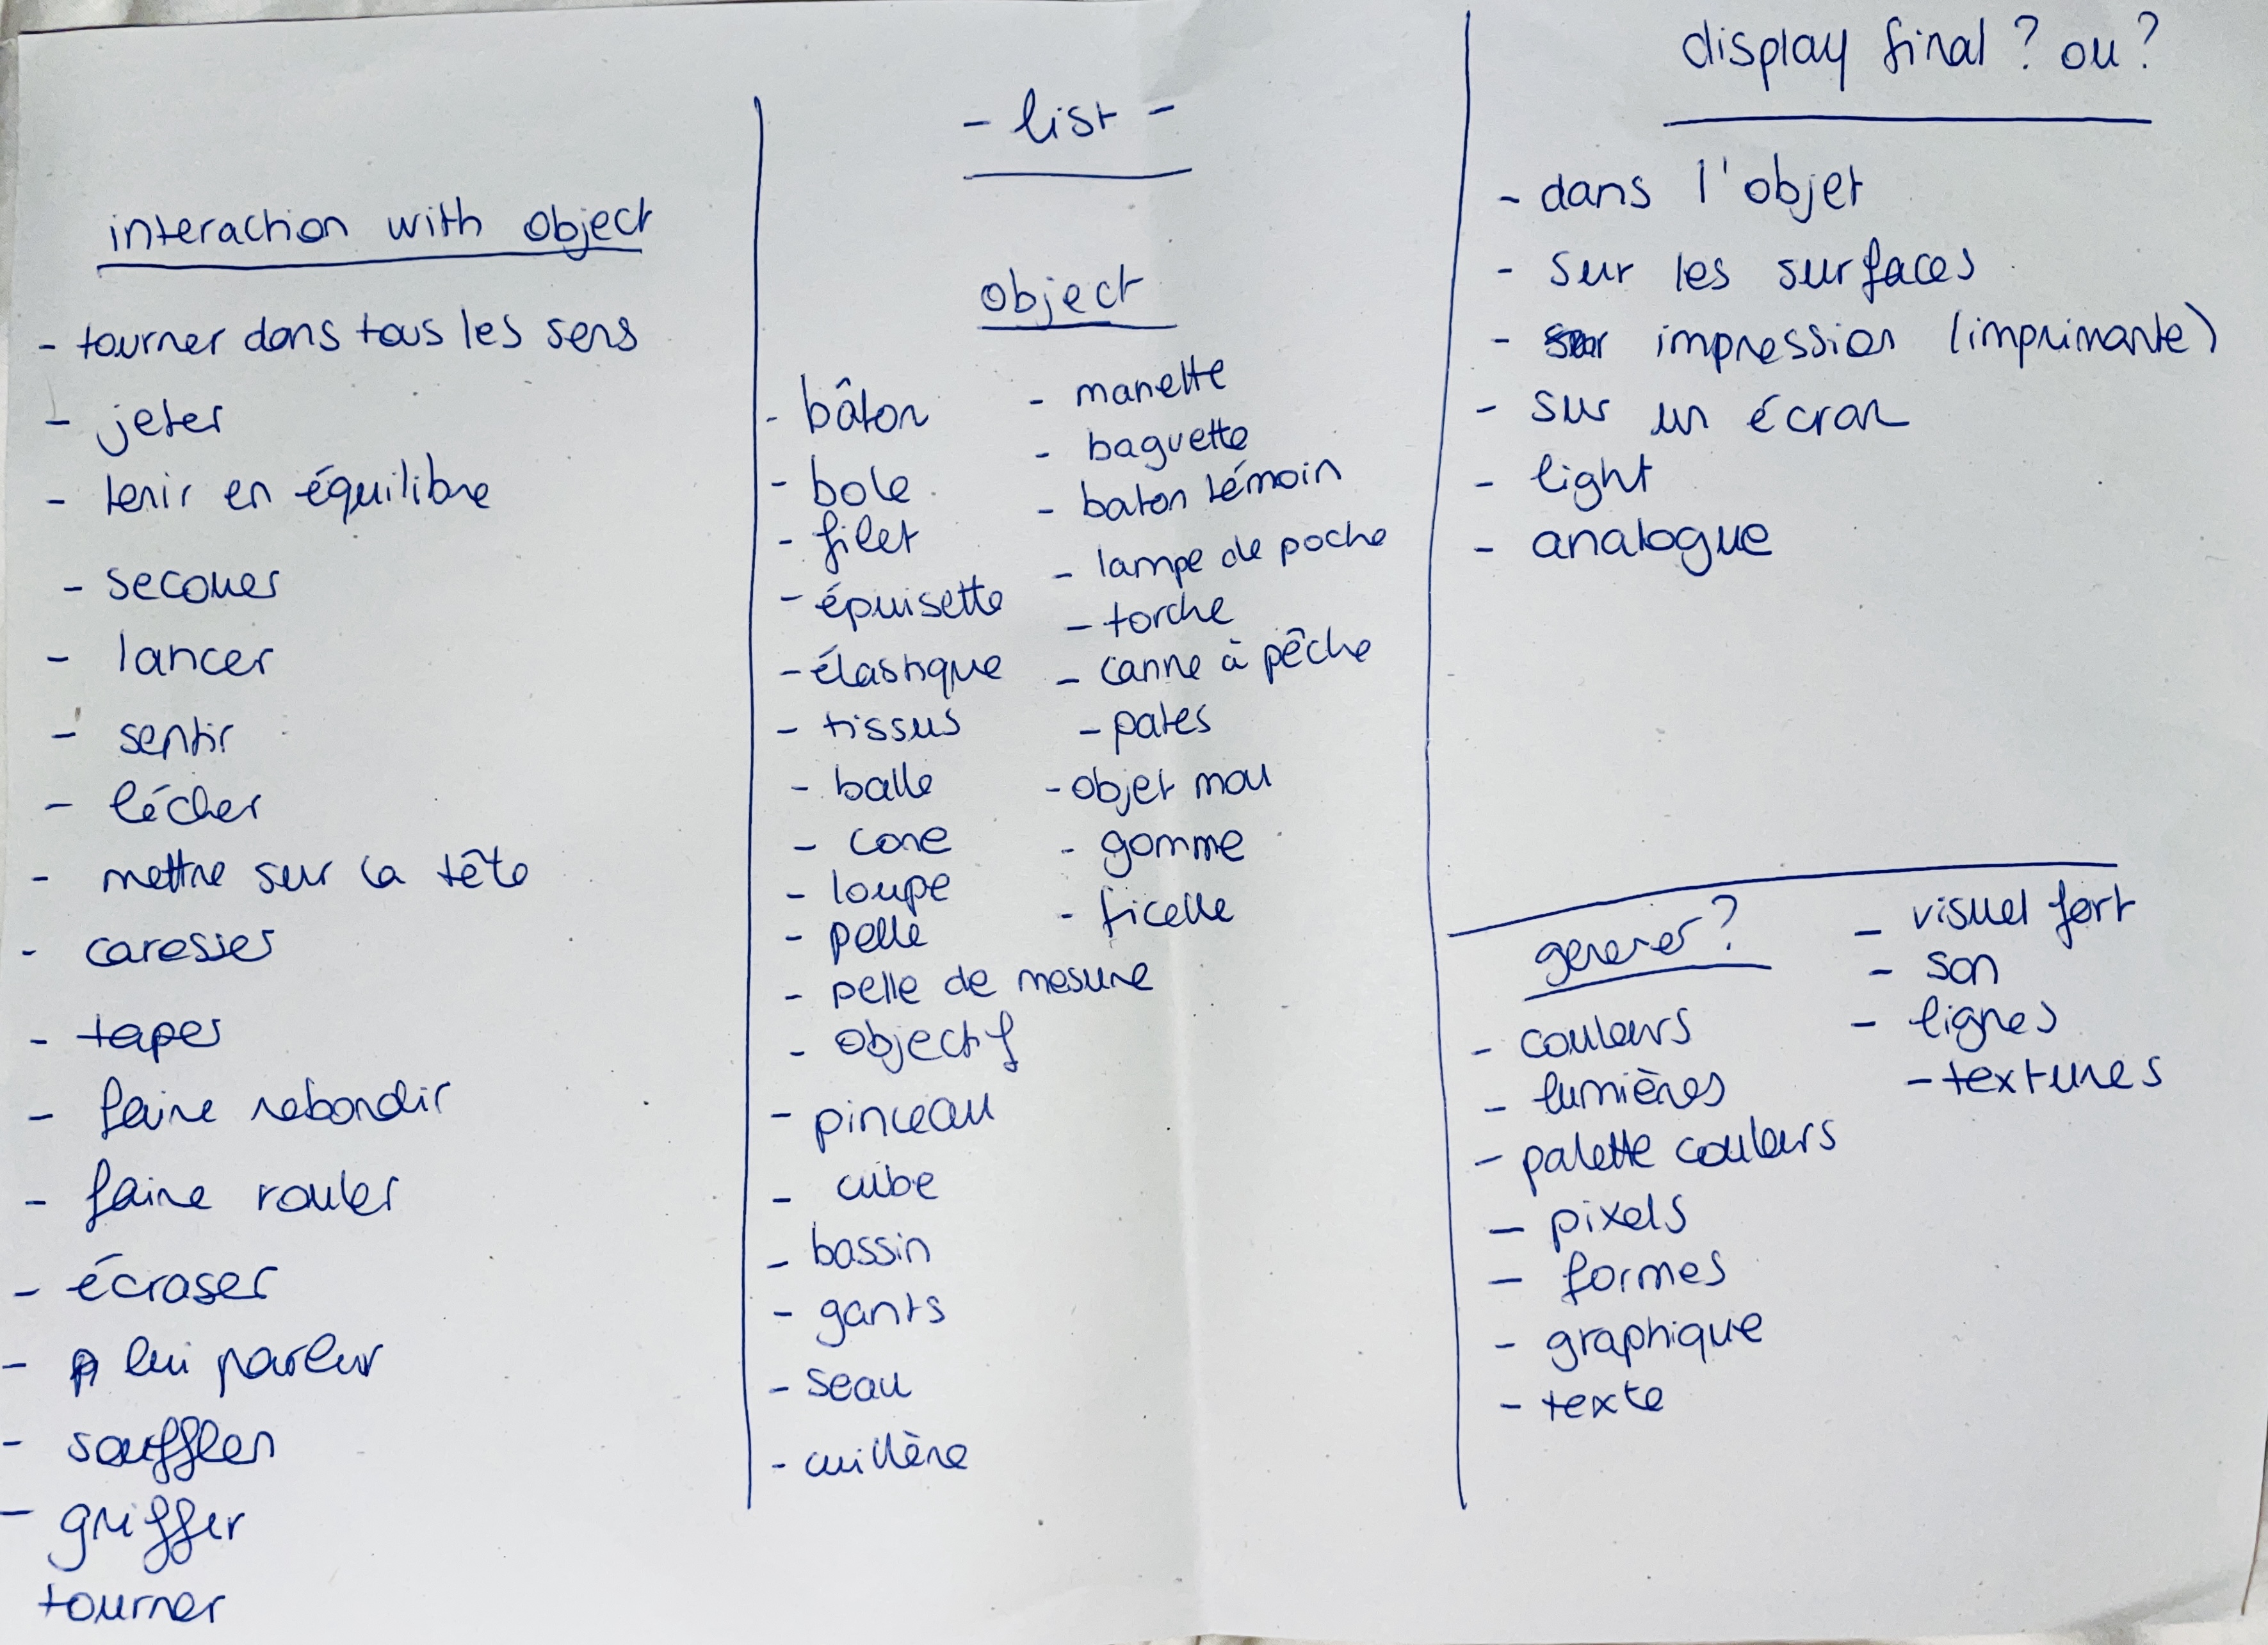 interaction with object
- tourner dans tous les sens
- jeter
- tenir en équilibre
- secouer
- lancer
- sentir
- lécher
- mettre sur la tête
- caresser
- taper
- faire rebondir
- faire rouler
- écraser
- lui parler
- souffler
- griffer
tourner
- list -
object
- bâton
- bole
- filet
- épuisette
- élastique
- tissus
- balle
- cone
- loupe
- pelle
- pelle de mesure
- objectif
- pinceau
- cube
- bassin
- gants
- seau
- cuillère
- manette
- baguette
- baton témoin
- lampe de poche
- torche
- canne à pêche
- pates
- objet mou
- gomme
- ficelle
display final ? ou ?
- dans l'objet
- sur les surfaces
- impression (imprimante)
- sur un écran
- light
- analogue
generer ?
- couleurs
- lumières
- palette couleurs
- pixels
- formes
- graphique
- texte
- visuel fort
- son
- lignes
- textures